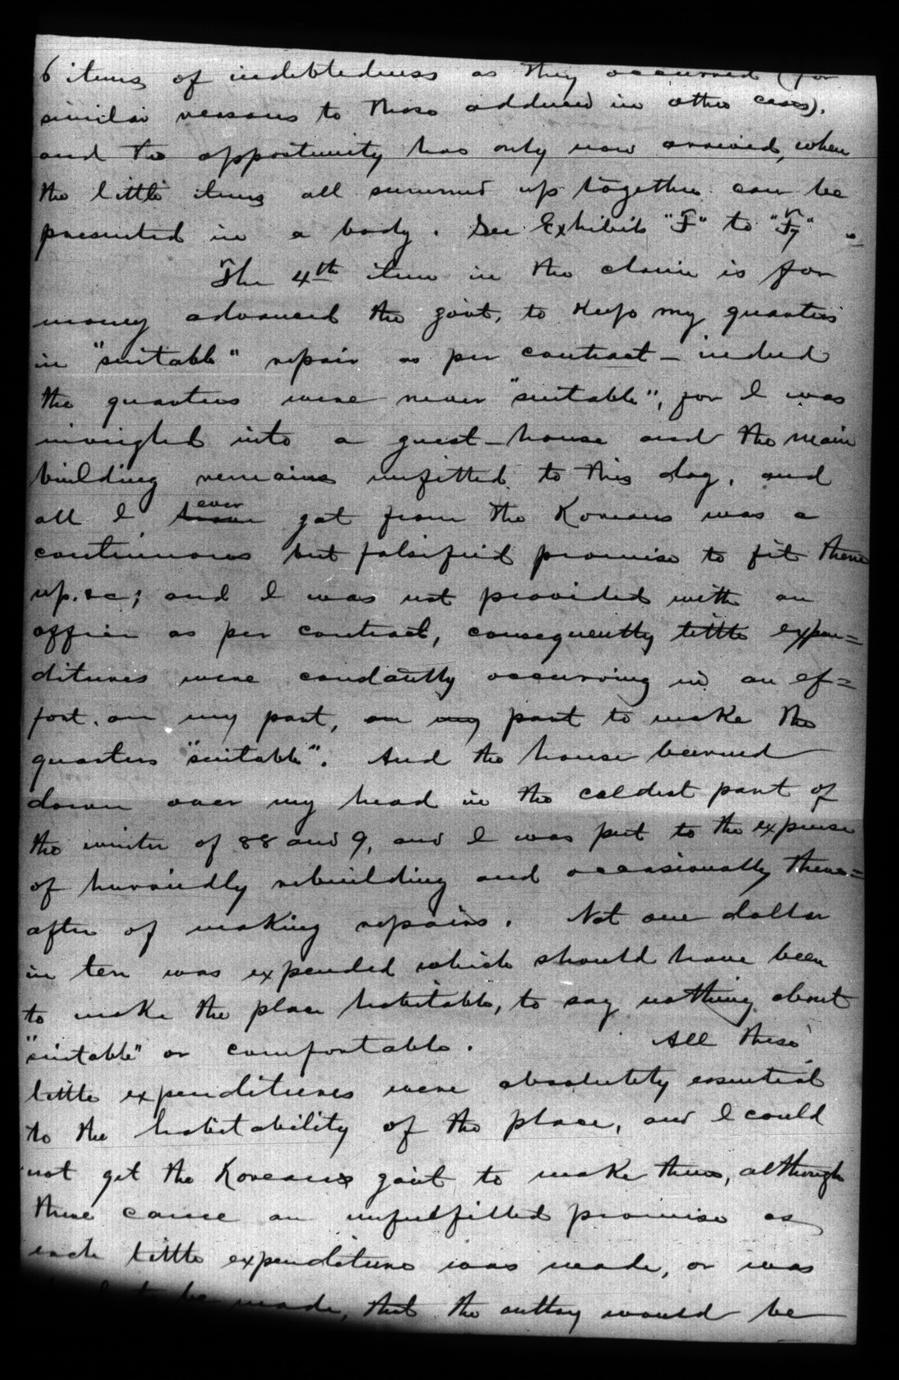 6 items of indebtedness as they occurred (for
similar reasons to those adduced in other cases).
and the opportunity has only now arrived, when
the little items all summed up together can be
presented in a body. See Exhibits "F" to "F7" =
The 4th item in the claim is for
money advanced the govt, to keep my quarters
in "suitable" repair as per contract – indeed
the quarters were never "suitable", for I was
inveigled into a guest-house and the main
building remains unfitted to this day, and
all I ever got from the Koreans was a
continuous but falsified promise to fit them
up. &c; and I was not provided with an
office as per contract, consequently little expen=
ditures were constantly occurring in an ef=
fort, on my part, on my part to make the
quarters "suitable". And the house burned
down over my head in the coldest part of
the winter of 88 and 9, and I was put to the expense
of hurriedly rebuilding and occasionally there=
after of making repairs. Not one dollar
in ten was expended which should have been
to make the place habitable, to say nothing about
"suitable" or comfortable. All these
little expenditures were absolutely essential
to the habitability of the place, and I could
not get the Koreans govt to make them, although
there came an unfulfilled promise as
each little expenditure was made, or was
to be made, that the outlay would be